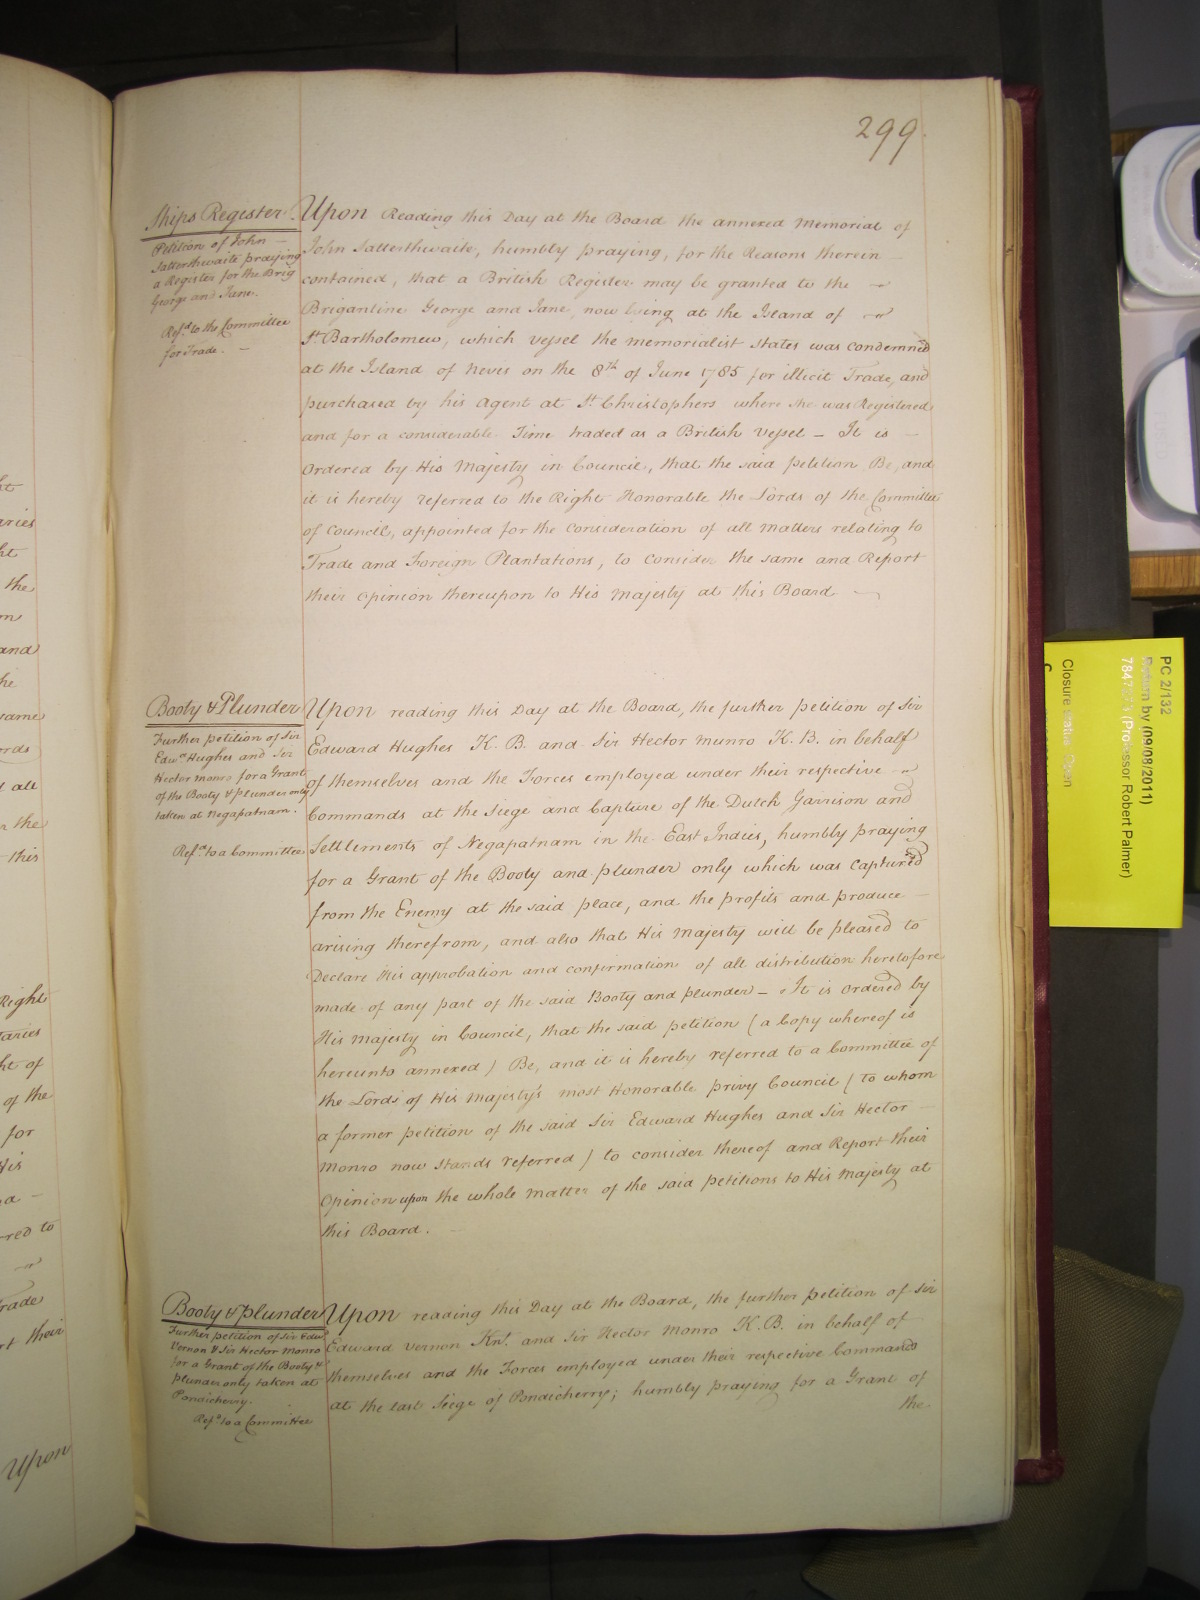 299.
Ships Register.
Petition of John
Satterthwaite praying
a Register for the Brig
George and Jane.
Ref.d to the Committee
for Trade.
Upon Reading this Day at the Board the annexed Memorial of
John Satterthwaite, humbly praying, for the Reasons therein
contained, that a British Register may be granted to the
Brigantine George and Jane, now lying at the Island of
St. Bartholomew, which vessel the memorialist states was condemned
at the Island of Nevis on the 8th of June 1785 for illicit Trade, and
purchased by his Agent at St. Christophers where she was Registered
and for a considerable Time traded as a British Vessel – It is
Ordered by His Majesty in Council, that the said petition Be, and
it is hereby referred to the Right Honorable the Lords of the Committee
of Council, appointed for the Consideration of all Matters relating to
Trade and Foreign Plantations, to Consider the same and Report
their Opinion thereupon to His Majesty at this Board.
Booty & Plunder
Further petition of Sir
Edw.d Hughes and Sir
Hector Monro for a Grant
of the Booty & plunder only
taken at Negapatnam.
Ref.d to a Committee
Upon reading this Day at the Board, the further petition of Sir
Edward Hughes K. B. and Sir Hector Munro K. B. in behalf
of themselves and the Forces employed under their respective
Commands at the Siege and Capture of the Dutch Garrison and
Settlements of Negapatnam in the East Indies, humbly praying
for a Grant of the Booty and plunder only which was captured
from the Enemy at the said place, and the profits and produce
arising therefrom, and also that His Majesty will be pleased to
Declare His approbation and confirmation of all distribution heretofore
made of any part of the said Booty and plunder – It is ordered by
His Majesty in Council, that the said petition (a Copy whereof is
hereunto annexed) Be, and it is hereby referred to a Committee of
the Lords of His Majesty's most Honorable privy Council (to whom
a former petition of the said Sir Edward Hughes and Sir Hector
Monro now stands referred) to consider thereof and Report their
Opinion upon the whole matter of the said petitions to His Majesty at
this Board.
Booty & plunder
Further petition of Sir Edw.d
Vernon & Sir Hector Monro
for a Grant of the Booty &
plunder only taken at
Pondicherry.
Ref.d to a Committee
Upon reading this Day at the Board, the further petition of Sir
Edward Vernon Knt. and Sir Hector Monro K. B. in behalf of
themselves and the Forces employed under their respective Commands
at the last Siege of Pondicherry; humbly praying for a Grant of
the
PC 2/132
Return by (09/08/2011)
(Professor Robert Palmer)
Closure status: Open
the
and
same
all
the
this
Right
of the
for
His
a –
their
Upon